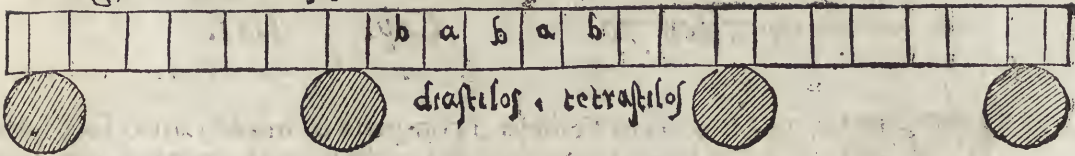 b a b a b
diastilos . tetrastilos